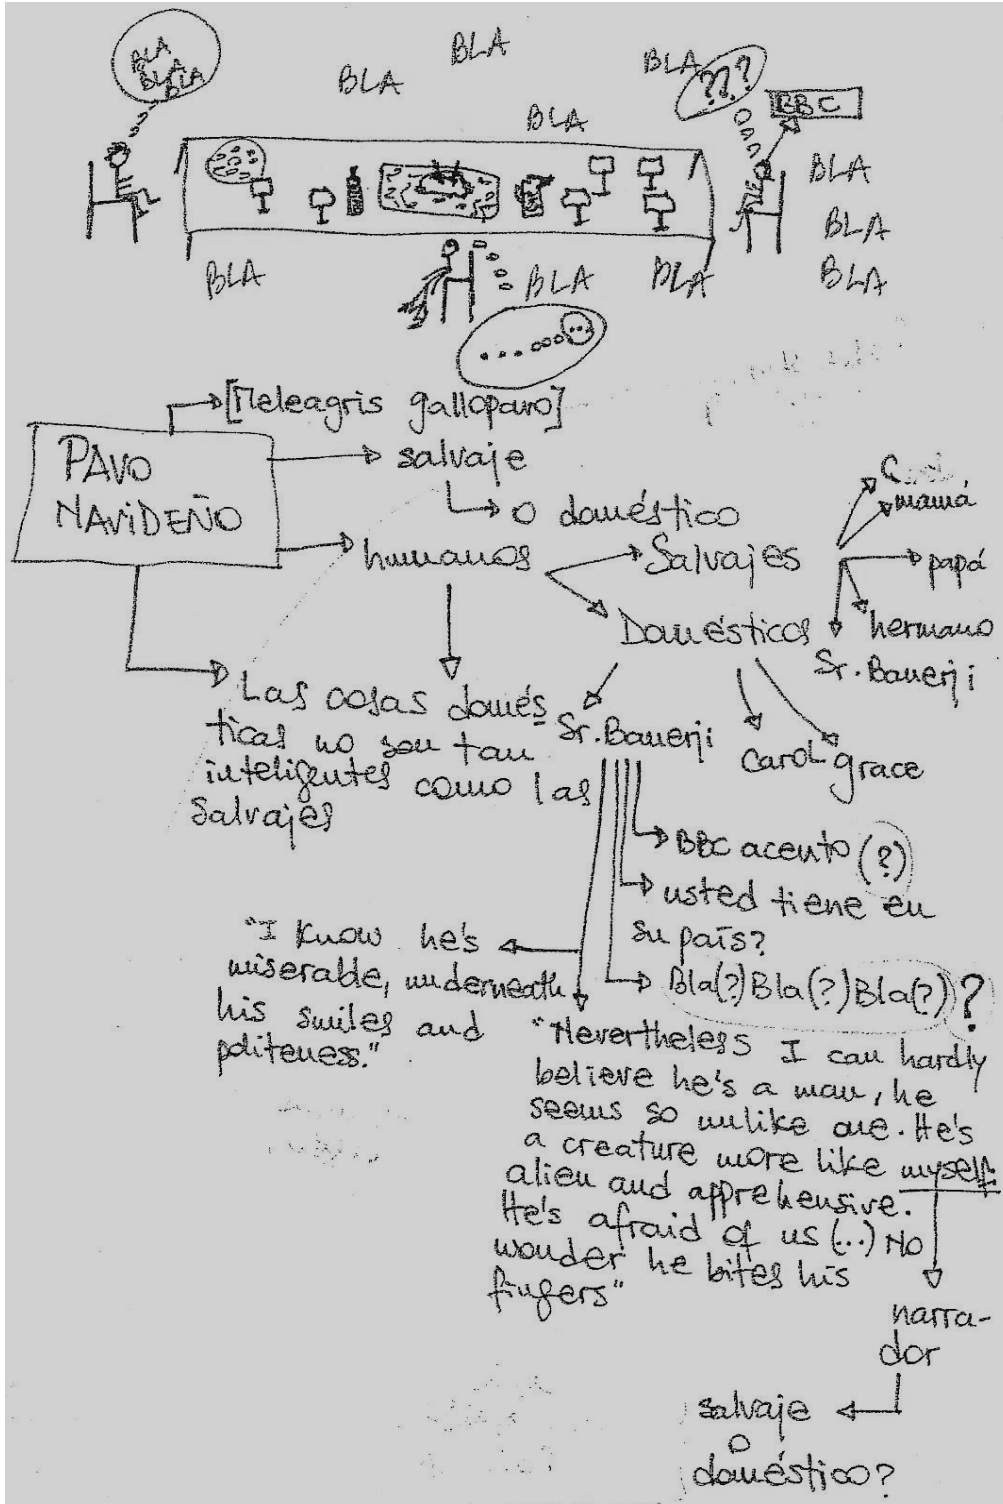 BLA
BLA
BLA
BLA
BLA
BLA
BLA
???
BBC
BLA
BLA
BLA
BLA
BLA
BLA
BLA
[Meleagris gallopavo]
PAVO
NAViDEÑO
salvaje
o doméstico
humanos
Salvajes
mamá
papá
hermano
Sr. Banerji
Domésticos
Sr. Banerji
Carol
grace
Las cosas domés
ticas no son tan
inteligentes como las
salvajes
BBC acento (?)
usted tiene en
su país?
Bla(?) Bla(?) Bla(?) ?
"I know he's
miserable, underneath
his smiles and
politeness."
"Nevertheless I can hardly
believe he's a man, he
seems so unlike one. He's
a creature more like myself:
alien and apprehensive.
He's afraid of us (...) No
wonder he bites his
fingers"
narra-
dor
salvaje
o
doméstico?